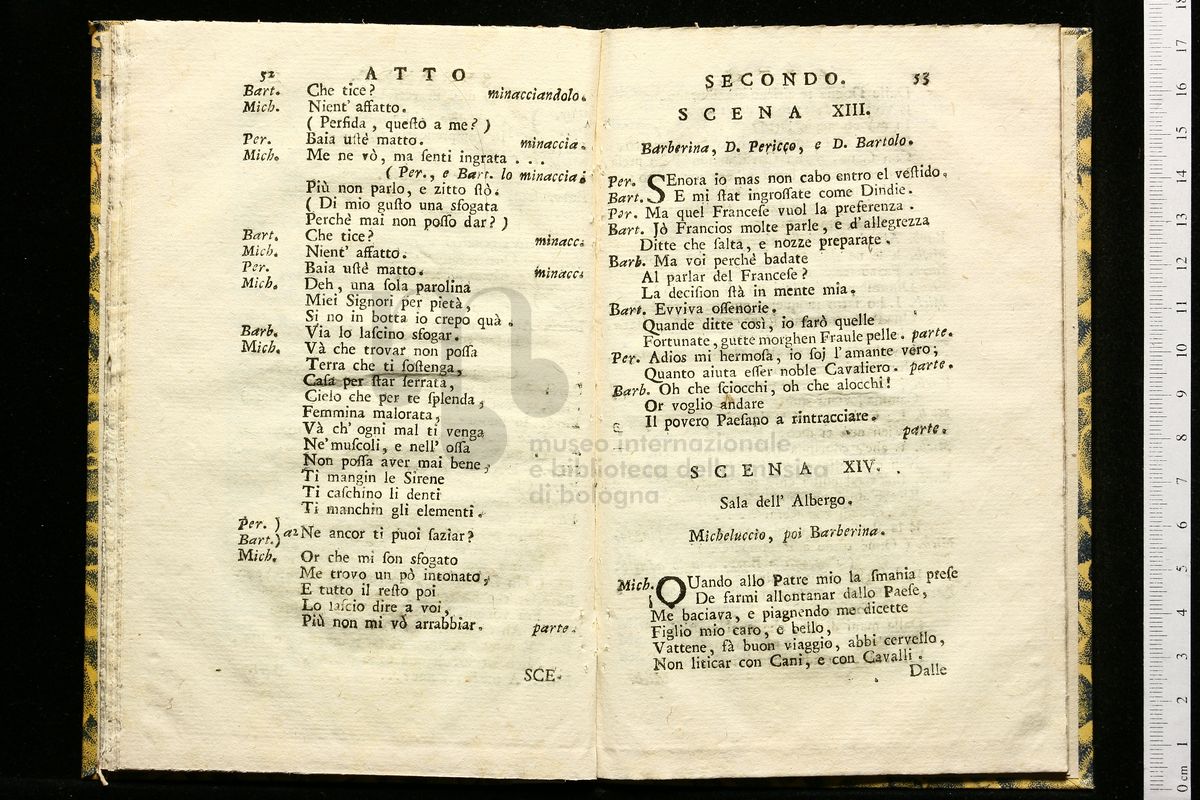 52 ATTO
Bart. Che tice? minacciandolo.
Mich. Nient' affatto.
( Perfida, queſto a me? )
Per. Baia uſtè matto. minaccia.
Mich. Me ne vò, ma ſenti ingrata . . .
( Per., e Bart. lo minaccia.
Più non parlo, e zitto ſtò.
( Di mio guſto una sfogata
Perchè mai non poſſo dar? )
Bart. Che tice? minacc.
Mich. Nient' affatto.
Per. Baia uſtè matto. minacc.
Mich. Deh, una ſola parolina
Miei Signori per pietà,
Si no in botta io crepo quà.
Barb. Via lo laſcino sfogar.
Mich. Và che trovar non poſſa
Terra che ti ſoſtenga,
Caſa per ſtar ſerrata,
Cielo che per te ſplenda,
Femmina malorata,
Và ch' ogni mal ti venga
Ne' muſcoli, e nell' oſſa
Non poſſa aver mai bene,
Ti mangin le Sirene
Ti caſchino li denti
Ti manchin gli elementi.
Per. )
Bart. ) a2 Ne ancor ti puoi ſaziar?
Mich. Or che mi ſon sfogato
Me trovo un pò intonato,
E tutto il reſto poi
Lo laſcio dire a voi,
Più non mi vò arrabbiar. parte.
SCE-
SECONDO. 53
SCENA XIII.
Barberina, D. Pericco, e D. Bartolo.
Per. SEnora io mas non cabo entro el veſtido.
Bart. E mi ſtat ingroſſate come Dindie.
Per. Ma quel Franceſe vuol la preferenza.
Bart. Jò Francios molte parle, e d'allegrezza
Ditte che ſalta, e nozze preparate.
Barb. Ma voi perchè badate
Al parlar del Franceſe?
La deciſion ſtà in mente mia.
Bart. Evviva oſſenorie.
Quande ditte così, io ſarò quelle
Fortunate, gutte morghen Fraule pelle. parte.
Per. Adios mi hermoſa, io ſoj l'amante vero;
Quanto aiuta eſſer noble Cavaliero. parte.
Barb. Oh che ſciocchi, oh che alocchi!
Or voglio andare
Il povero Paeſano a rintracciare.
parte.
SCENA XIV.
Sala dell' Albergo.
Micheluccio, poi Barberina.
Mich. QUando allo Patre mio la ſmania preſe
De farmi allontanar dallo Paeſe,
Me baciava, e piagnendo me dicette
Figlio mio caro, e bello,
Vattene, fà buon viaggio, abbi cervello,
Non liticar con Cani, e con Cavalli.
Dalle
museo internazionale
e biblioteca della musica
di bologna
0 cm 1 2 3 4 5 6 7 8 9 10 11 12 13 14 15 16 17 18